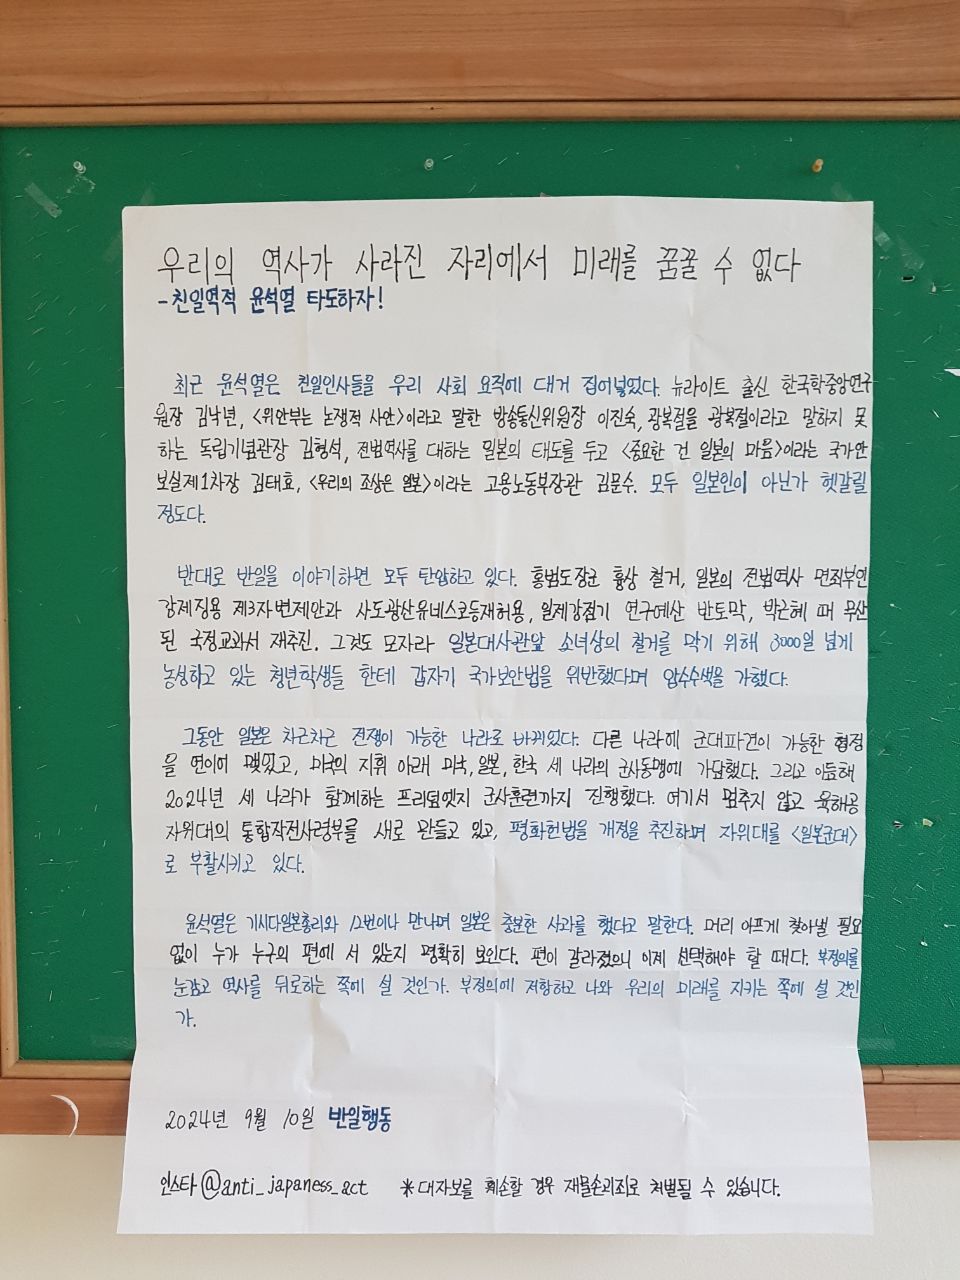 우리의 역사가 사라진 자리에서 미래를 꿈꿀 수 없다
-친일역적 윤석열 타도하자!
최근 윤석열은 친일인사들을 우리 사회 요직에 대거 집어넣었다. 뉴라이트 출신 한국학중앙연구
원장 김낙년, <위안부는 논쟁적 사안>이라고 말한 방송통신위원장 이진숙, 광복절을 광복절이라고 말하지 못
하는 독립기념관장 김형석, 전범역사를 대하는 일본의 태도를 두고 <중요한 건 일본의 마음>이라는 국가안
보실제1차장 김태효, <우리의 조상은 일본>이라는 고용노동부장관 김문수. 모두 일본인이 아닌가 헷갈릴
정도다.
반대로 반일을 이야기하면 모두 탄압하고 있다. 홍범도장군 흉상 철거, 일본의 전범역사 면죄부인
강제징용 제3자변제안과 사도광산유네스코등재허용, 일제강점기 연구예산 반토막, 박근혜 때 무산
된 국정교과서 재추진. 그것도 모자라 일본대사관앞 소녀상의 철거를 막기 위해 3000일 넘게
농성하고 있는 청년학생들 한테 갑자기 국가보안법을 위반했다며 압수수색을 가했다.
그동안 일본은 차근차근 전쟁이 가능한 나라로 바뀌었다. 다른 나라에 군대파견이 가능한 협정
을 연이어 맺었고, 미국의 지휘 아래 미국, 일본, 한국 세 나라의 군사동맹에 가담했다. 그리고 이듬해
2024년 세 나라가 함께하는 프리덤엣지 군사훈련까지 진행했다. 여기서 멈추지 않고 육해공
자위대의 통합작전사령부를 새로 만들고 있고, 평화헌법을 개정을 추진하며 자위대를 <일본군대>
로 부활시키고 있다.
윤석열은 기시다일본총리와 12번이나 만나며 일본은 충분한 사과를 했다고 말한다. 머리 아프게 찾아낼 필요
없이 누가 누구의 편에 서 있는지 명확히 보인다. 편이 갈라졌으니 이제 선택해야 할 때다. 부정의를
눈감고 역사를 뒤로하는 쪽에 설 것인가. 부정의에 저항하고 나와 우리의 미래를 지키는 쪽에 설 것인
가.
2024년 9월 10일 반일행동
인스타 @anti_japaness_act *대자보를 훼손할 경우 재물손괴죄로 처벌될 수 있습니다.